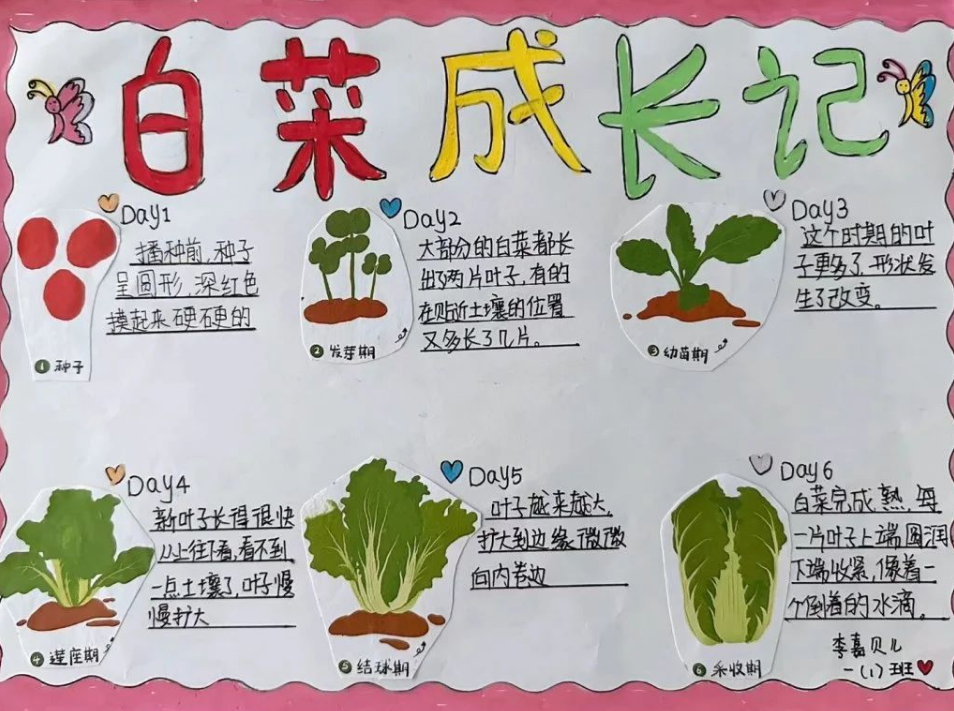 白菜成长记
Day1
播种前,种子
呈圆形,深红色
摸起来硬不硬的
1 种子
Day2
大部分的白菜都长
出了两片叶子,有的
在贴近土壤的位置
又多长了几片。
2 发芽期
Day3
这个时期的叶
子更多了,形状发
生了改变。
3 幼苗期
Day4
新叶子长得很快
从上往下看,看不到
一点土壤了,叶子慢
慢扩大
4 莲座期
Day5
叶子越来越大,
扩大到边缘微微
向内卷边
5 结球期
Day6
白菜完成熟,每
一片叶子上端圆润
下端收紧,像着一
个倒着的水滴。
6 采收期
李嘉贝儿
一(1)班